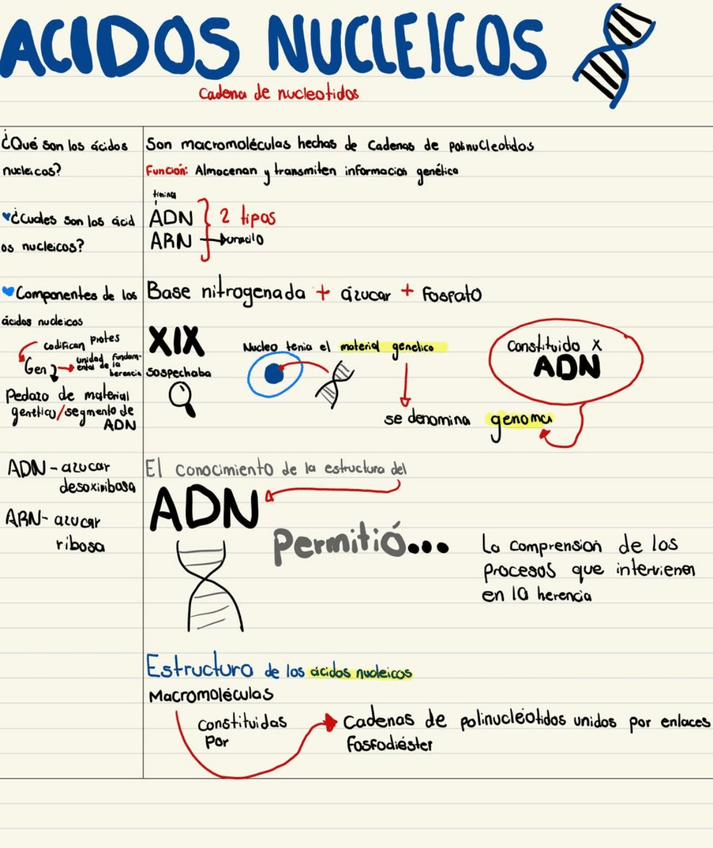 ACIDOS NUCLEICOS
Cadena de nucleotidos
¿Qué son los ácidos
nucleicos?
Son macromoléculas hechas de Cadenas de polinucleotidos
Función: Almacenan y transmiten informacion genética
¿Cuales son los ácid
os nucleicos?
timina
ADN
ARN → uracilo
2 tipos
Componentes de los
ácidos nucleicos
Base nitrogenada + ázucar + Fosfato
codifican protes
Gen → unidad fundam-
ental de la
herencia
Pedazo de material
genetico/segmento de
ADN
XIX
Sospechaba
Nucleo tenia el material genetico
se denomina genoma
Constituido x
ADN
ADN - azucar
desoxiribosa
ARN - azucar
ribosa
El conocimiento de la estructura del
ADN
Permitió...
La comprension de los
procesos que intervienen
en la herencia
Estructura de los ácidos nucleicos
Macromoléculas
Constituidas
Por
Cadenas de polinucleótidos unidos por enlaces
Fosfodiéster